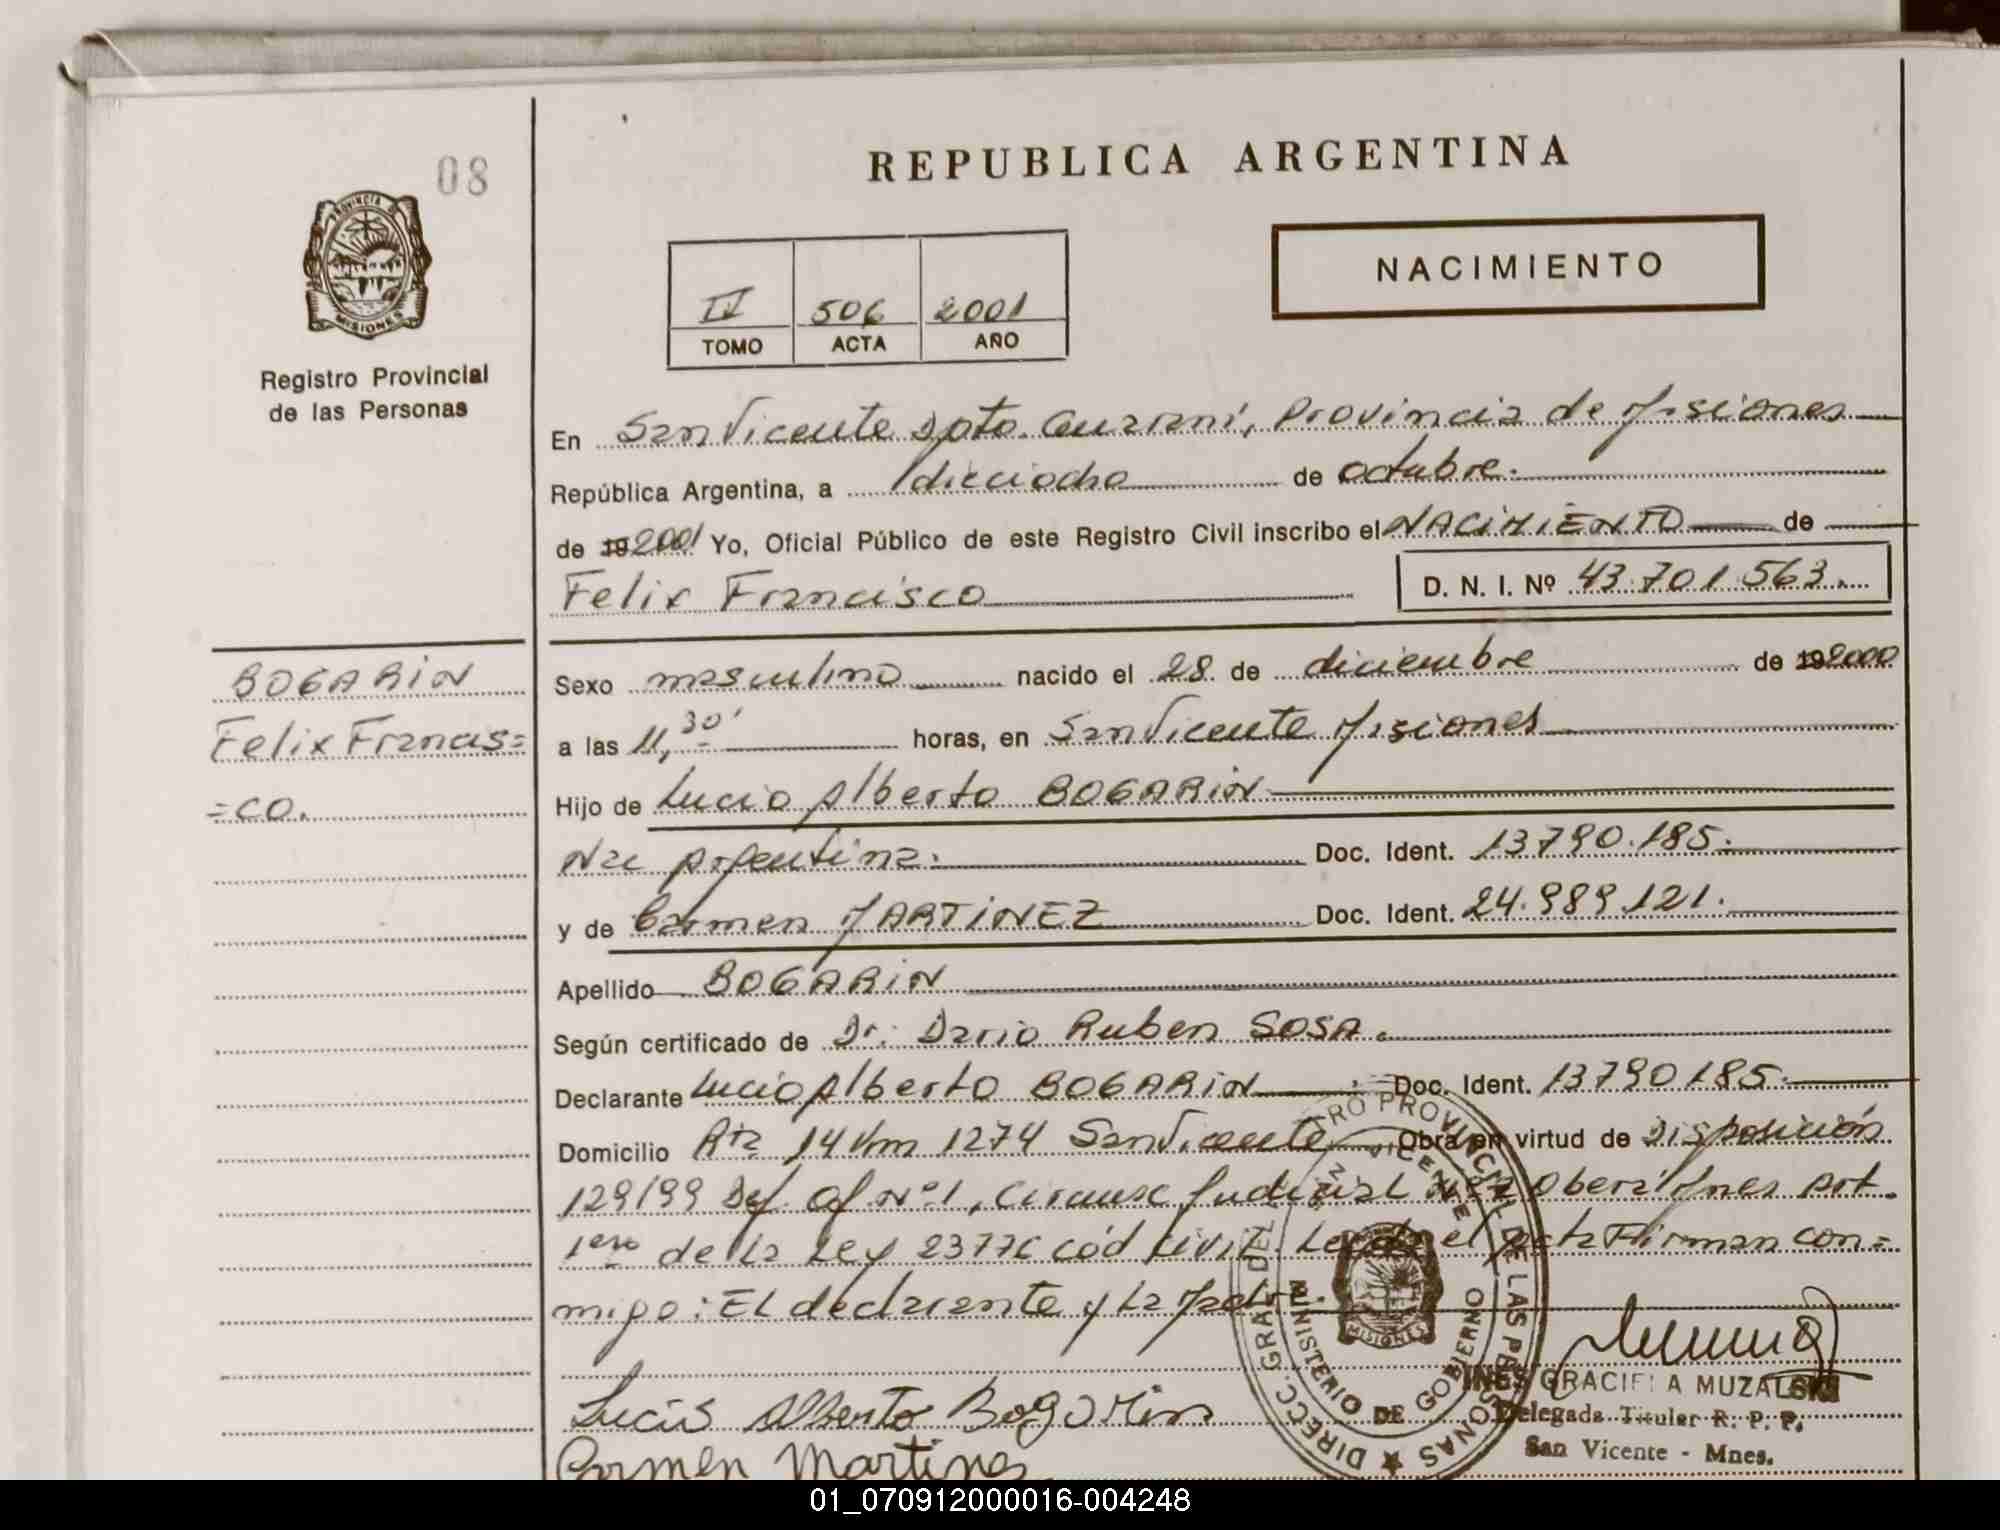 08
REPUBLICA ARGENTINA
PROVINCIA DE
MISIONES
Registro Provincial
de las Personas
NACIMIENTO
IV 506 2001
TOMO ACTA AÑO
En San Vicente Dpto. Guarani, Provincia de Misiones
República Argentina, a dieciocho de octubre.
de 19 2001 Yo, Oficial Público de este Registro Civil inscribo el NACIMIENTO de
Felix Francisco D. N. I. Nº 43.701.563.
BOGARIN
Felix Francis=
=co.
Sexo masculino nacido el 28 de diciembre de 19 2000
a las 11,30' horas, en San Vicente Misiones
Hijo de Lucio Alberto BOGARIN
Nac Argentina. Doc. Ident. 13790.185.
y de Carmen MARTINEZ Doc. Ident. 24.989.121.
Apellido BOGARIN
Según certificado de Dr. Dario Ruben SOSA.
Declarante Lucio Alberto BOGARIN Doc. Ident. 13790185.
Domicilio Rta 14 Km 1274 San Vicente Obra en virtud de Disposición
129/99 Def. Of. Nº1, Circunsc Judicial Nº2 Obera Mnes Art.
1ero de la Ley 23776 Cód Civil. Leída el Acta Firman con=
migo: El declarante y la Madre.
Lucio Alberto Bogarin
Carmen Martines
DIRECC. GRAL. DEL REGISTRO PROVINCIAL DE LAS PERSONAS
SAN VICENTE
MINISTERIO DE GOBIERNO
MISIONES
INES GRACIELA MUZALSKI
Delegada Titular R. P. P.
San Vicente - Mnes.
01_070912000016-004248